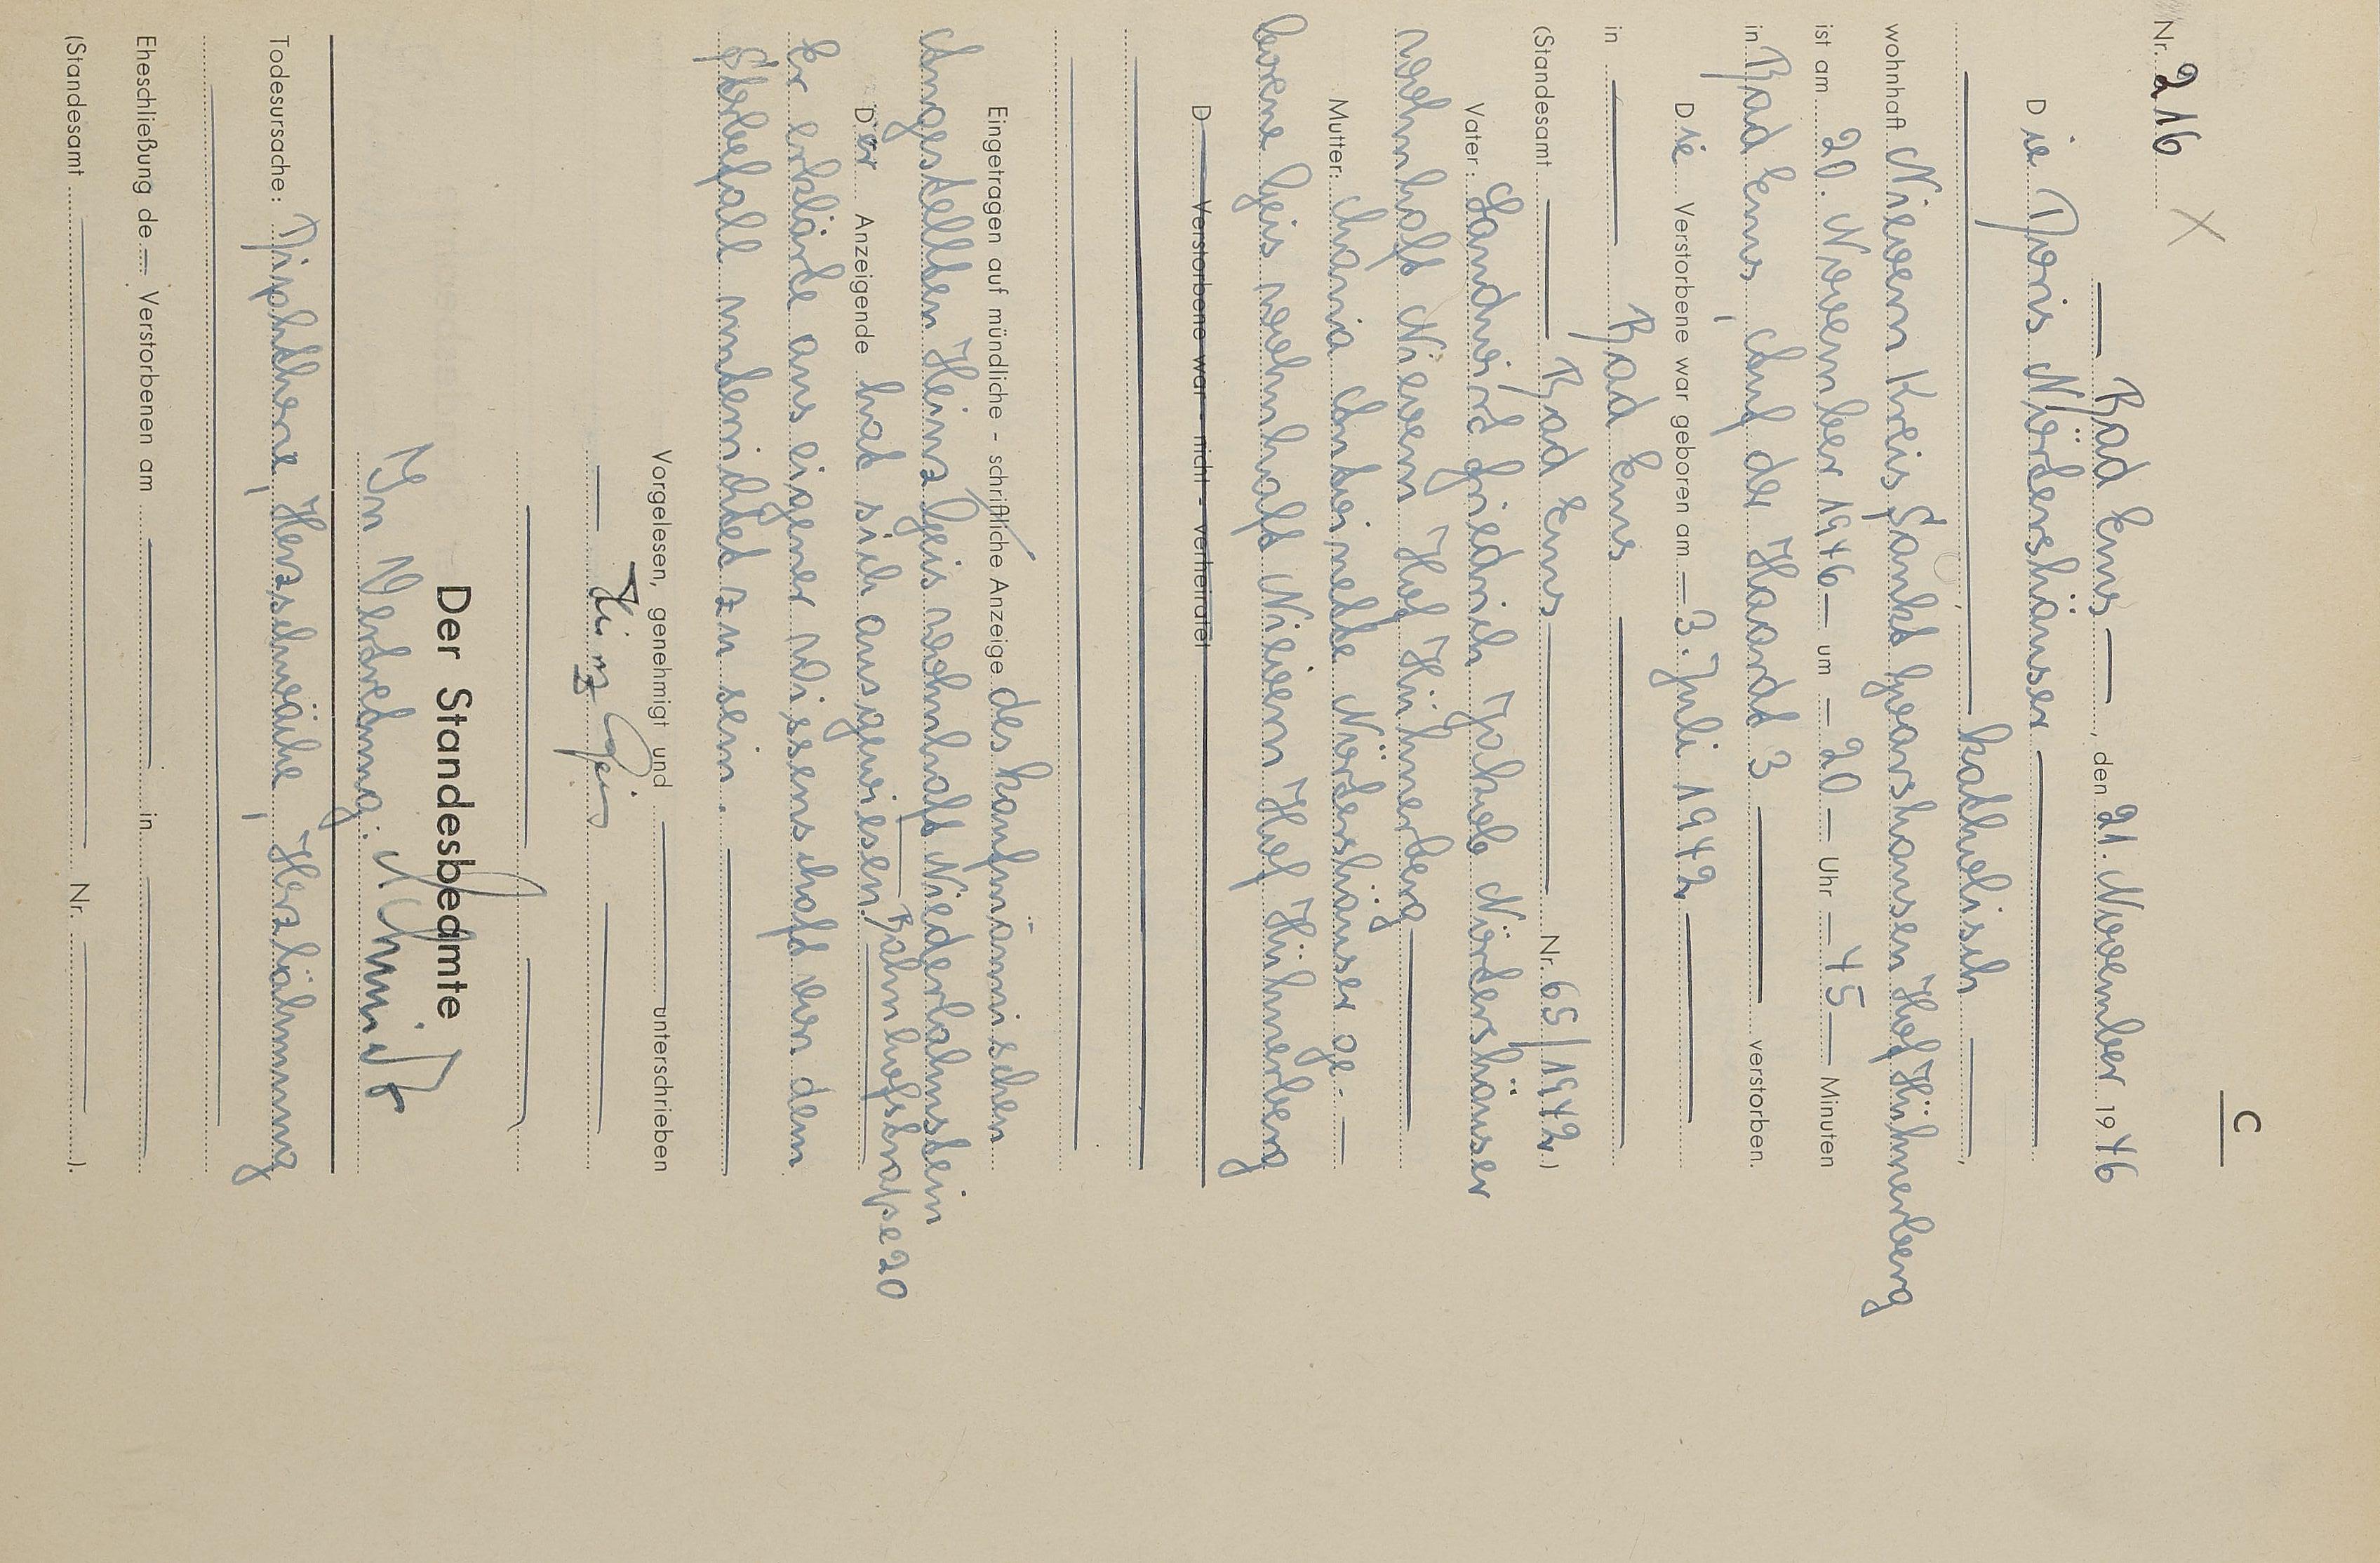 C
Nr. 216
Bad Ems, den 21. November 1946
Die Doris Nörtershäuser
katholisch,
wohnhaft Nievern Kreis Sankt Goarshausen Hof Hühnerberg
ist am 20. November 1946 um 20 Uhr 45 Minuten
in Bad Ems, Auf der Haardt 3 verstorben.
Die Verstorbene war geboren am 3. Juli 1942
in Bad Ems
(Standesamt Bad Ems Nr. 65/1942.)
Vater: Landwirt Friedrich Jakob Nörtershäuser
wohnhaft Nievern Hof Hühnerberg
Mutter: Maria Antoinette Nörtershäuser ge-
borene Geis wohnhaft Nievern Hof Hühnerberg
D Verstorbene war - nicht - verheiratet
Eingetragen auf mündliche - schriftliche Anzeige des kaufmännischen
Angestellten Heinz Geis wohnhaft Niederlahnstein
Bahnhofstraße 20
Der Anzeigende hat sich ausgewiesen.
Er erklärte aus eigener Wissenschaft von dem
Sterbefall unterrichtet zu sein.
Vorgelesen, genehmigt und unterschrieben
Heinz Geis
Der Standesbeamte
In Vertretung: Schmidt
Todesursache: Diphtherie, Herzschwäche, Herzlähmung
Eheschließung de Verstorbenen am in
(Standesamt Nr. ).